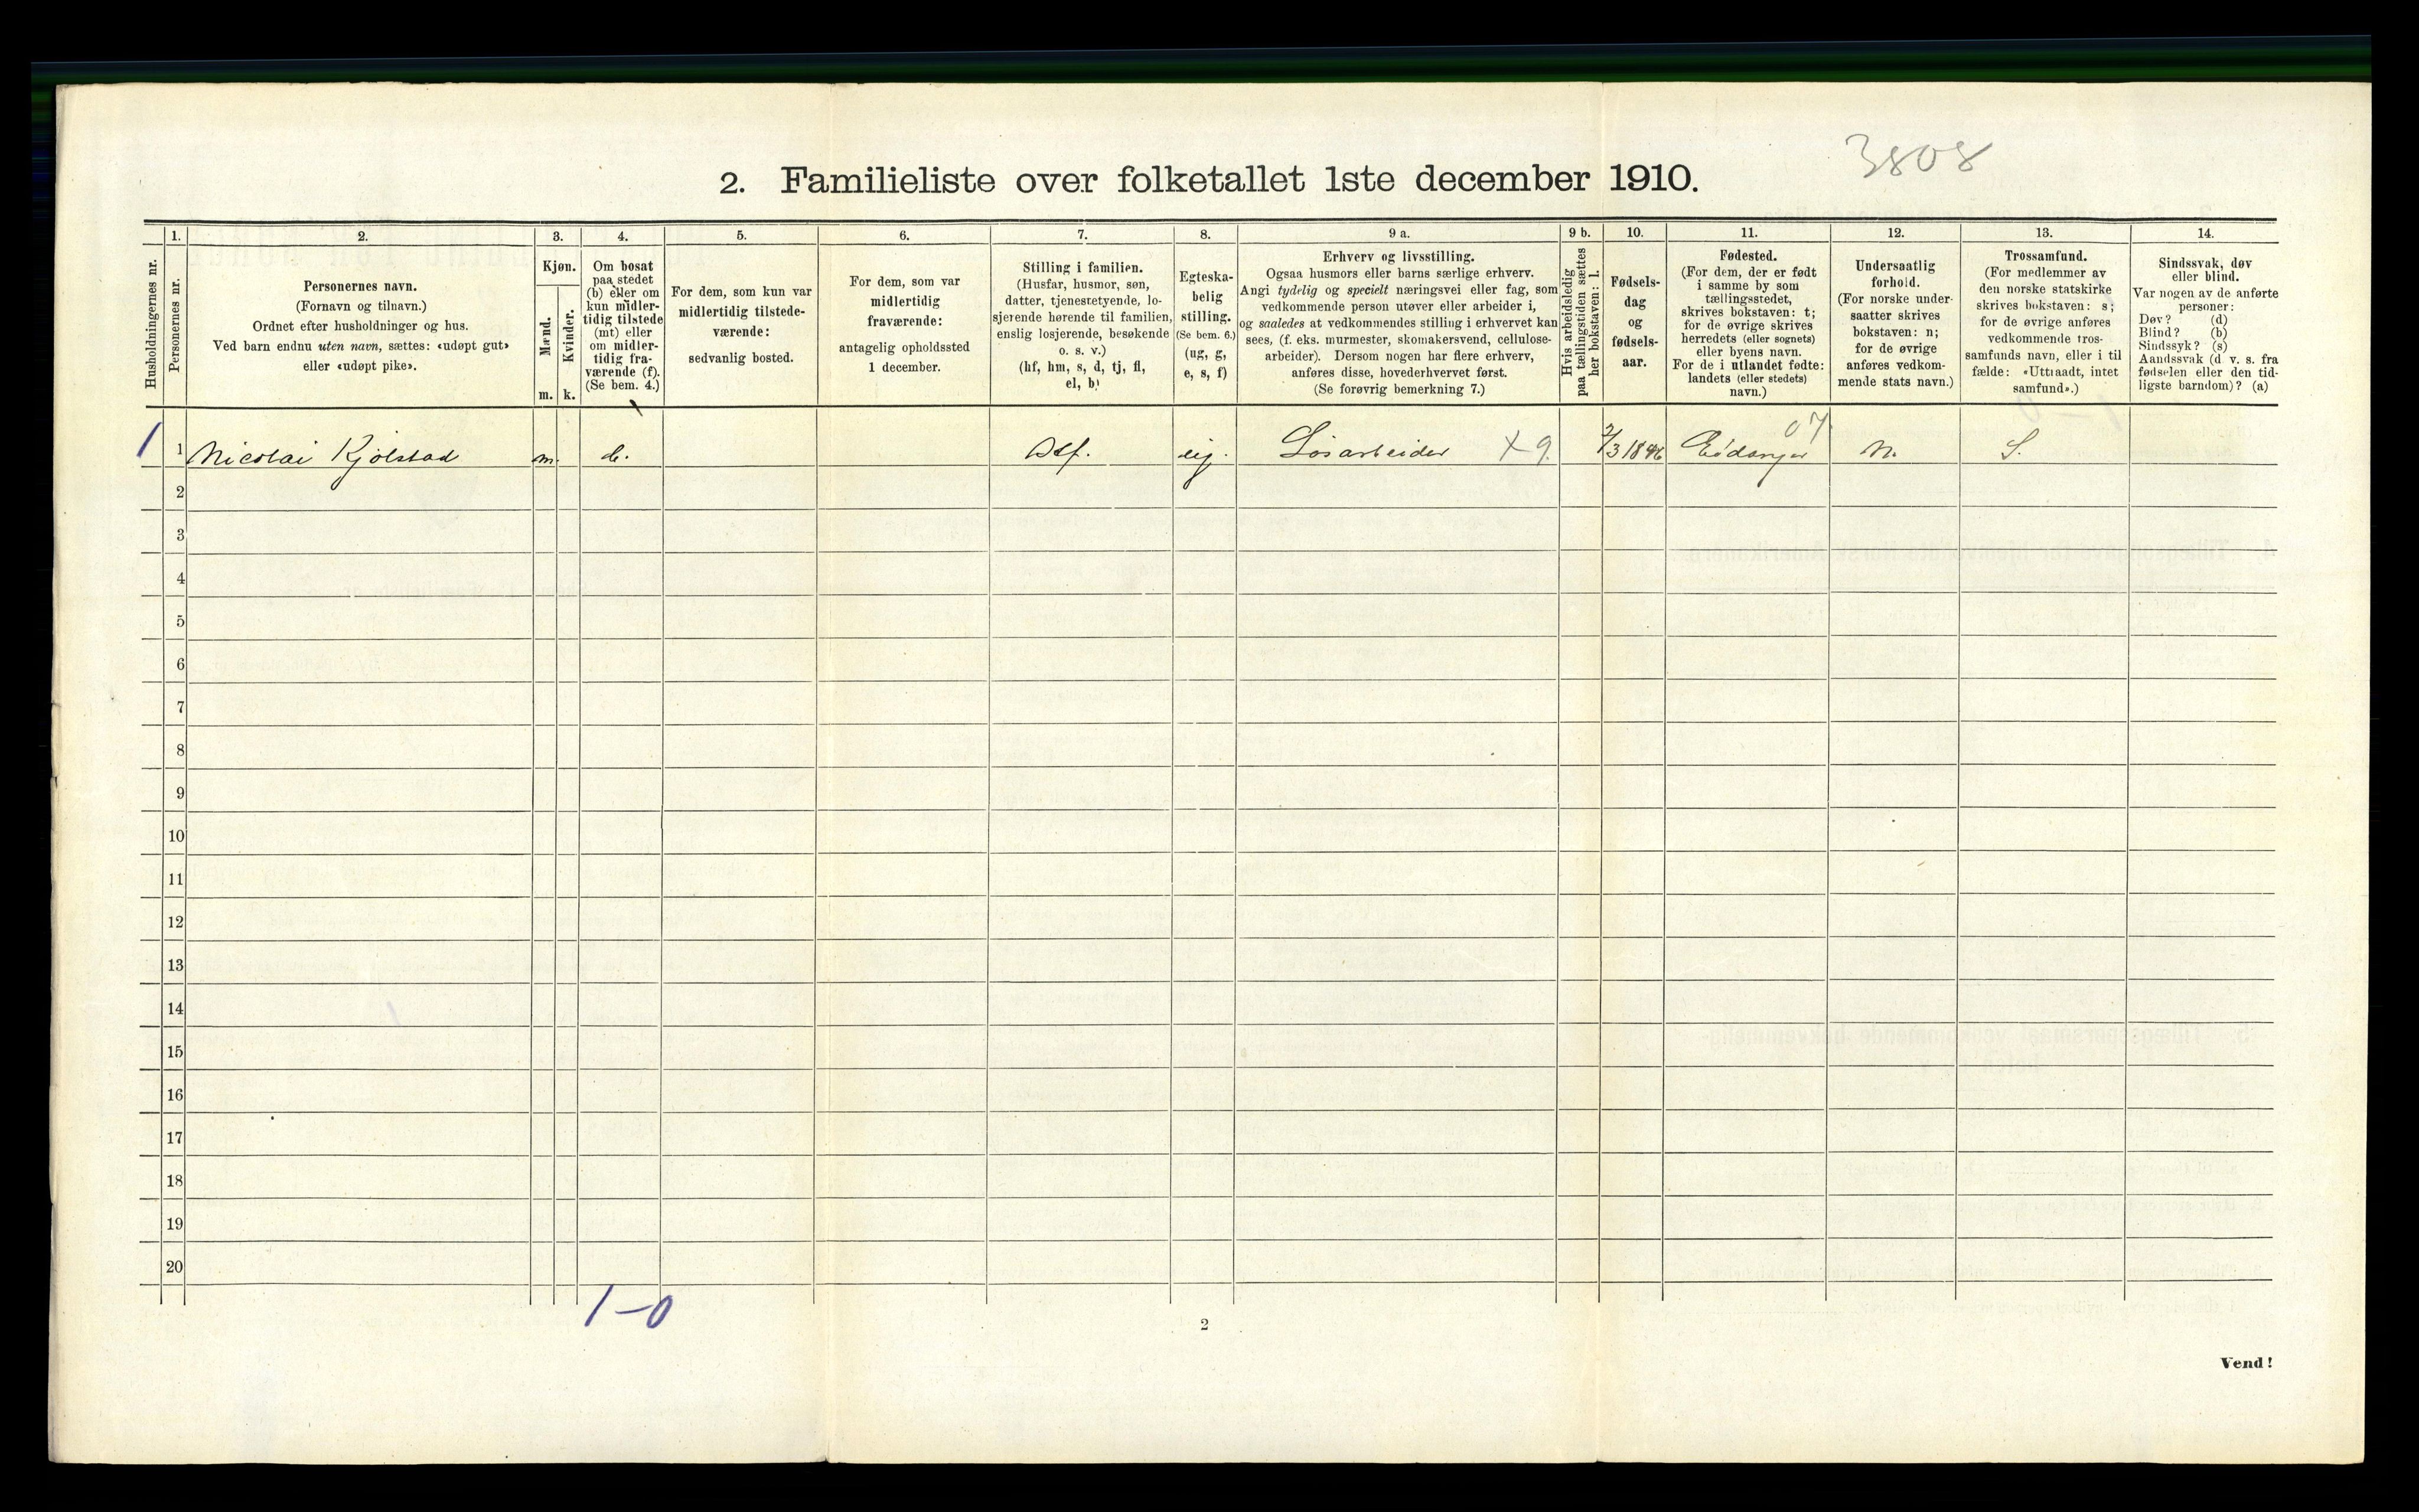 3808
2. Familieliste over folketallet 1ste december 1910.
Husholdningernes nr.
1.
Personernes nr.
2.
Personernes navn.
(Fornavn og tilnavn.)
Ordnet efter husholdninger og hus.
Ved barn endnu uten navn, sættes: «udøpt gut»
eller «udøpt pike».
3.
Kjøn.
Mænd.
Kvinder.
m. k.
4.
Om bosat
paa stedet
(b) eller om
kun midler-
tidig tilstede
(mt) eller
om midler-
tidig fra-
værende (f).
(Se bem. 4.)
5.
For dem, som kun var
midlertidig tilstede-
værende:
sedvanlig bosted.
6.
For dem, som var
midlertidig
fraværende:
antagelig opholdssted
1 december.
7.
Stilling i familien.
(Husfar, husmor, søn,
datter, tjenestetyende, lo-
sjerende hørende til familien,
enslig losjerende, besøkende
o. s. v.)
(hf, hm, s, d, tj, fl,
el, b)
8.
Egteska-
belig
stilling.
(Se bem. 6.)
(ug, g,
e, s, f)
9 a.
Erhverv og livsstilling.
Ogsaa husmors eller barns særlige erhverv.
Angi tydelig og specielt næringsvei eller fag, som
vedkommende person utøver eller arbeider i,
og saaledes at vedkommendes stilling i erhvervet kan
sees, (f. eks. murmester, skomakersvend, cellulose-
arbeider). Dersom nogen har flere erhverv,
anføres disse, hovederhvervet først.
(Se forøvrig bemerkning 7.)
9 b.
Hvis arbeidsledig
paa tællingstiden sættes
her bokstaven: l.
10.
Fødsels-
dag
og
fødsels-
aar.
11.
Fødested.
(For dem, der er født
i samme by som
tællingsstedet,
skrives bokstaven: t;
for de øvrige skrives
herredets (eller sognets)
eller byens navn.
For de i utlandet fødte:
landets (eller stedets)
navn.)
12.
Undersaatlig
forhold.
(For norske under-
saatter skrives
bokstaven: n;
for de øvrige
anføres vedkom-
mende stats navn.)
13.
Trossamfund.
(For medlemmer av
den norske statskirke
skrives bokstaven: s;
for de øvrige anføres
vedkommende tros-
samfunds navn, eller i til
fælde: «Uttraadt, intet
samfund».)
14.
Sindssvak, døv
eller blind.
Var nogen av de anførte
personer:
Døv? (d)
Blind? (b)
Sindssyk? (s)
Aandssvak (d. v. s. fra
fødselen eller den tid-
ligste barndom)? (a)
1 1 Nicolai Kjølstad m. b. eij. Løsarbeider X 9. Eidanger 07 n. S.
2
3
4
5
6
7
8
9
10
11
12
13
14
15
16
17
18
19
20
1–0
2
Vend!